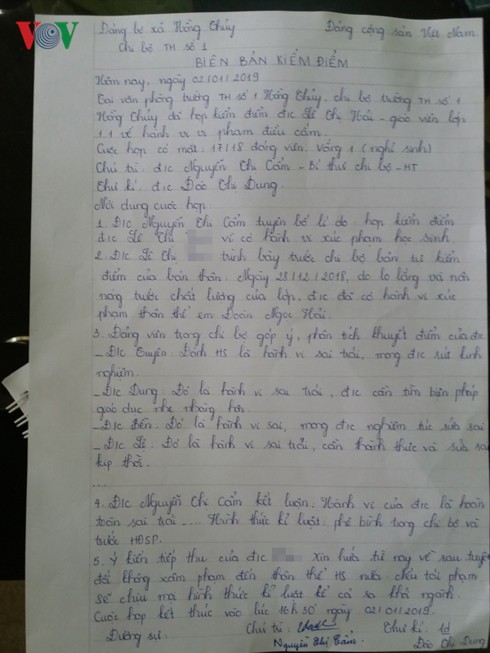 VOV
Đảng bộ xã Hồng Thủy Đảng cộng sản Việt Nam
Chi bộ TH số 1
BIÊN BẢN KIỂM ĐIỂM
Hôm nay, ngày 02/01/2019
Tại văn phòng trường TH số 1 Hồng Thủy, chi bộ trường TH số 1
Hồng Thủy đã họp kiểm điểm đ/c Lê Thị Hải - giáo viên lớp
1.1 về hành vi vi phạm điều cấm.
Cuộc họp có mặt: 17/18 đảng viên. Vắng 1 (nghỉ sinh)
Chủ trì: đ/c Nguyễn Thị Cẩm - Bí thư chi bộ - HT
Thư kí: đ/c Đào Thị Dung.
Nội dung cuộc họp
1. Đ/c Nguyễn Thị Cẩm tuyên bố lí do: họp kiểm điểm
đ/c Lê Thị vì có hành vi xúc phạm học sinh.
2. Đ/c Lê Thị trình bày trước chi bộ bản tự kiểm
điểm của bản thân. Ngày 28/12/2018, do lo lắng và nôn
nóng trước chất lượng của lớp, đ/c đã có hành vi xúc
phạm thân thể em Đoàn Ngọc Hải.
3. Đảng viên trong chi bộ góp ý, phân tích khuyết điểm của đ/c
- Đ/c Quyên: Đánh HS là hành vi sai trái, mong đ/c rút kinh
nghiệm.
- Đ/c Dung: Đó là hành vi sai trái, đ/c cần tìm biện pháp
giáo dục nhẹ nhàng hơn.
- Đ/c Đến: Đó là hành vi sai, mong đ/c nghiêm túc sửa sai
- Đ/c Lê: Đó là hành vi sai trái, cần thành thực và sửa sai
kịp thời.
...
4. Đ/c Nguyễn Thị Cẩm kết luận: Hành vi của đ/c là hoàn
toàn sai trái .... Hình thức kỉ luật: phê bình trong chi bộ và
trước HĐSP.
5. Ý kiến tiếp thu của đ/c Xin hứa từ nay về sau tuyệt
đối không xâm phạm đến thân thể HS nữa. Nếu tái phạm
sẽ chịu mọi hình thức kỉ luật kể cả ra khỏi ngành.
Cuộc họp kết thúc vào lúc 16h30 ngày 02/01/2019.
Đương sự: Chủ trì: Thư kí:
Nguyễn Thị Cẩm Đào Thị Dung